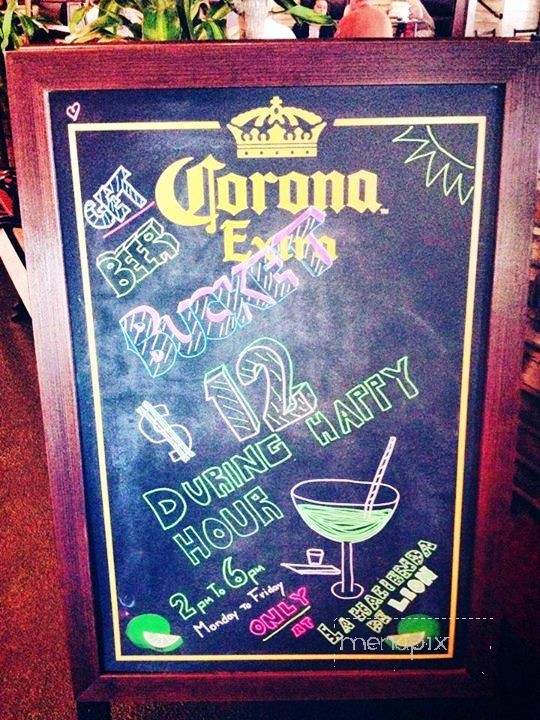 Corona
Extra
GET
BEER
BUCKET
$ 12
DURING HAPPY
HOUR
2 pm To 6 pm
Monday to Friday
ONLY
AT
LA HACIENDA
DE LEON
menupix